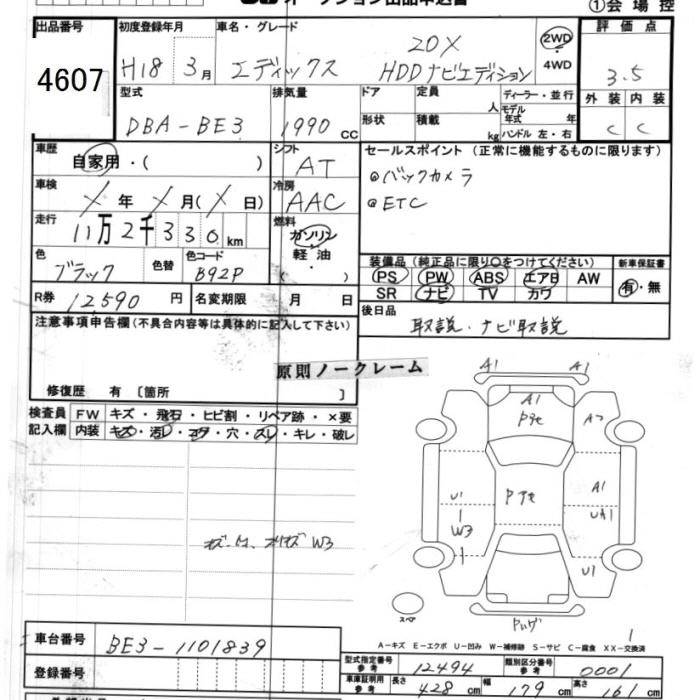 ①会場控
出品番号 初度登録年月 車名・グレード 評価点
4607 H18 3月 エディックス 20X HDDナビエディション 2WD 4WD 3.5
型式 排気量 ドア 定員 人 ディーラー・並行 外装 内装
DBA-BE3 1990 cc 形状 積載 kg モデル年式 年 ハンドル 左・右 C C
車歴 自家用・( ) シフト AT セールスポイント(正常に機能するものに限ります)
車検 年 月( 日) 冷房 AAC ◎バックカメラ
◎ETC
走行 11万2千330km 燃料 ガソリン 軽油 ・ ( )
色 ブラック 色替 色コード B92P 装備品(純正品に限り○をつけてください) 新車保証書
PS PW ABS エアB AW 有・無
R券 12590円 名変期限 月 日 SR ナビ TV カワ
後日品 取説・ナビ取説
注意事項申告欄(不具合内容等は具体的に記入して下さい)
原則ノークレーム
修復歴 有〔箇所 〕
検査員記入欄 FW キズ・飛石・ヒビ割・リペア跡・×要
内装 キズ・汚レ・コゲ・穴・スレ・キレ・破レ
A1 A1
A1
A1
U1
W3
UA1
U1
W3
スペア
A-キズ E-エクボ U-凹み W-補修跡 S-サビ C-腐食 XX-交換済
車台番号 BE3-1101839
型式指定番号 参考 12494 類別区分番号 参考 0001
登録番号 車庫証明用 参考 長さ 428cm 幅 179cm 高さ 161cm